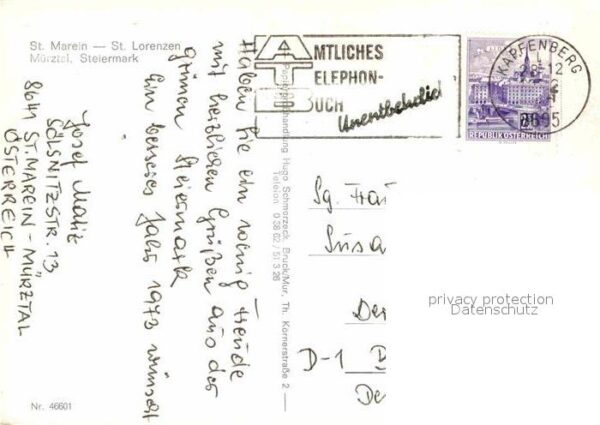 St. Marein — St. Lorenzen
Mürztal, Steiermark
Haben Sie ein wenig Freude
mit herzlichen Grüßen aus der
grünen Steiermark
Ein besseres Jahr 1973 wünscht
Josef Matiz
SÖLSNITZSTR. 13
8641 ST. MAREIN - MÜRZTAL
ÖSTERREICH
Nr. 46601
Papierhandlung Hugo Schmerzeck, Bruck/Mur, Th. Körnerstraße 2 —
Telefon 0 38 62 / 51 3 26
AMTLICHES
TELEPHON-
BUCH
Unentbehrlich
KAPFENBERG
28.12
8605
REPUBLIK ÖSTERREICH
Sg. Frau
Susa
Der
D-1 B
De
privacy protection
Datenschutz